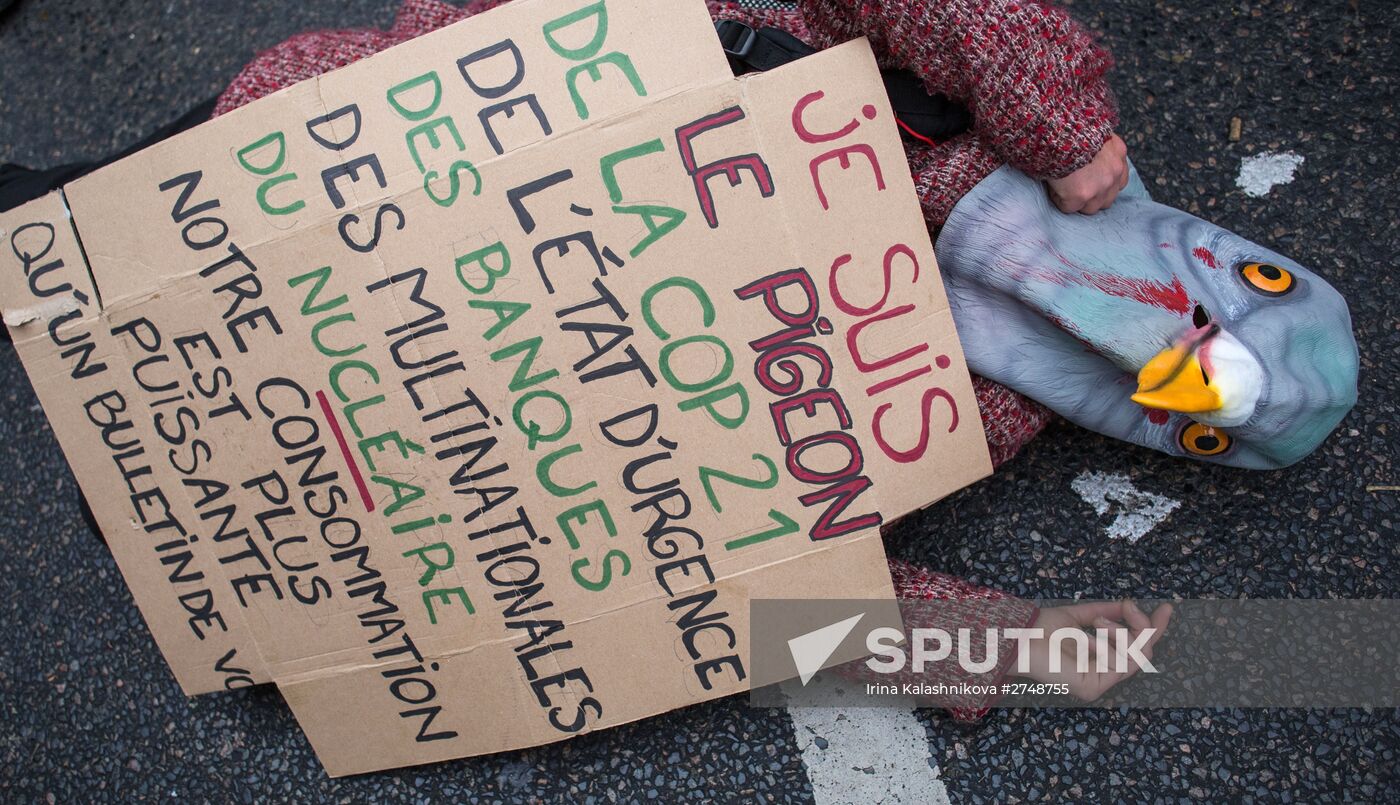 JE SUIS
LE PIGEON
DE LA COP 21
DE L'ÉTAT D'URGENCE
DES BANQUES
DES MULTINATIONALES
DU NUCLÉAIRE
NOTRE CONSOMMATION
EST PLUS
PUISSANTE
QU'UN BULLETIN DE
SPUTNIK
Irina Kalashnikova # 2748755